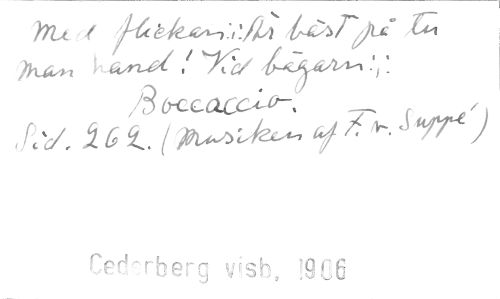 Med flickan:;: Är bäst på tu
man hand! Vid bägarn:;:
Boccaccio.
Sid. 262. (Musiken af F. v. Suppé)
Cederberg visb. 1906